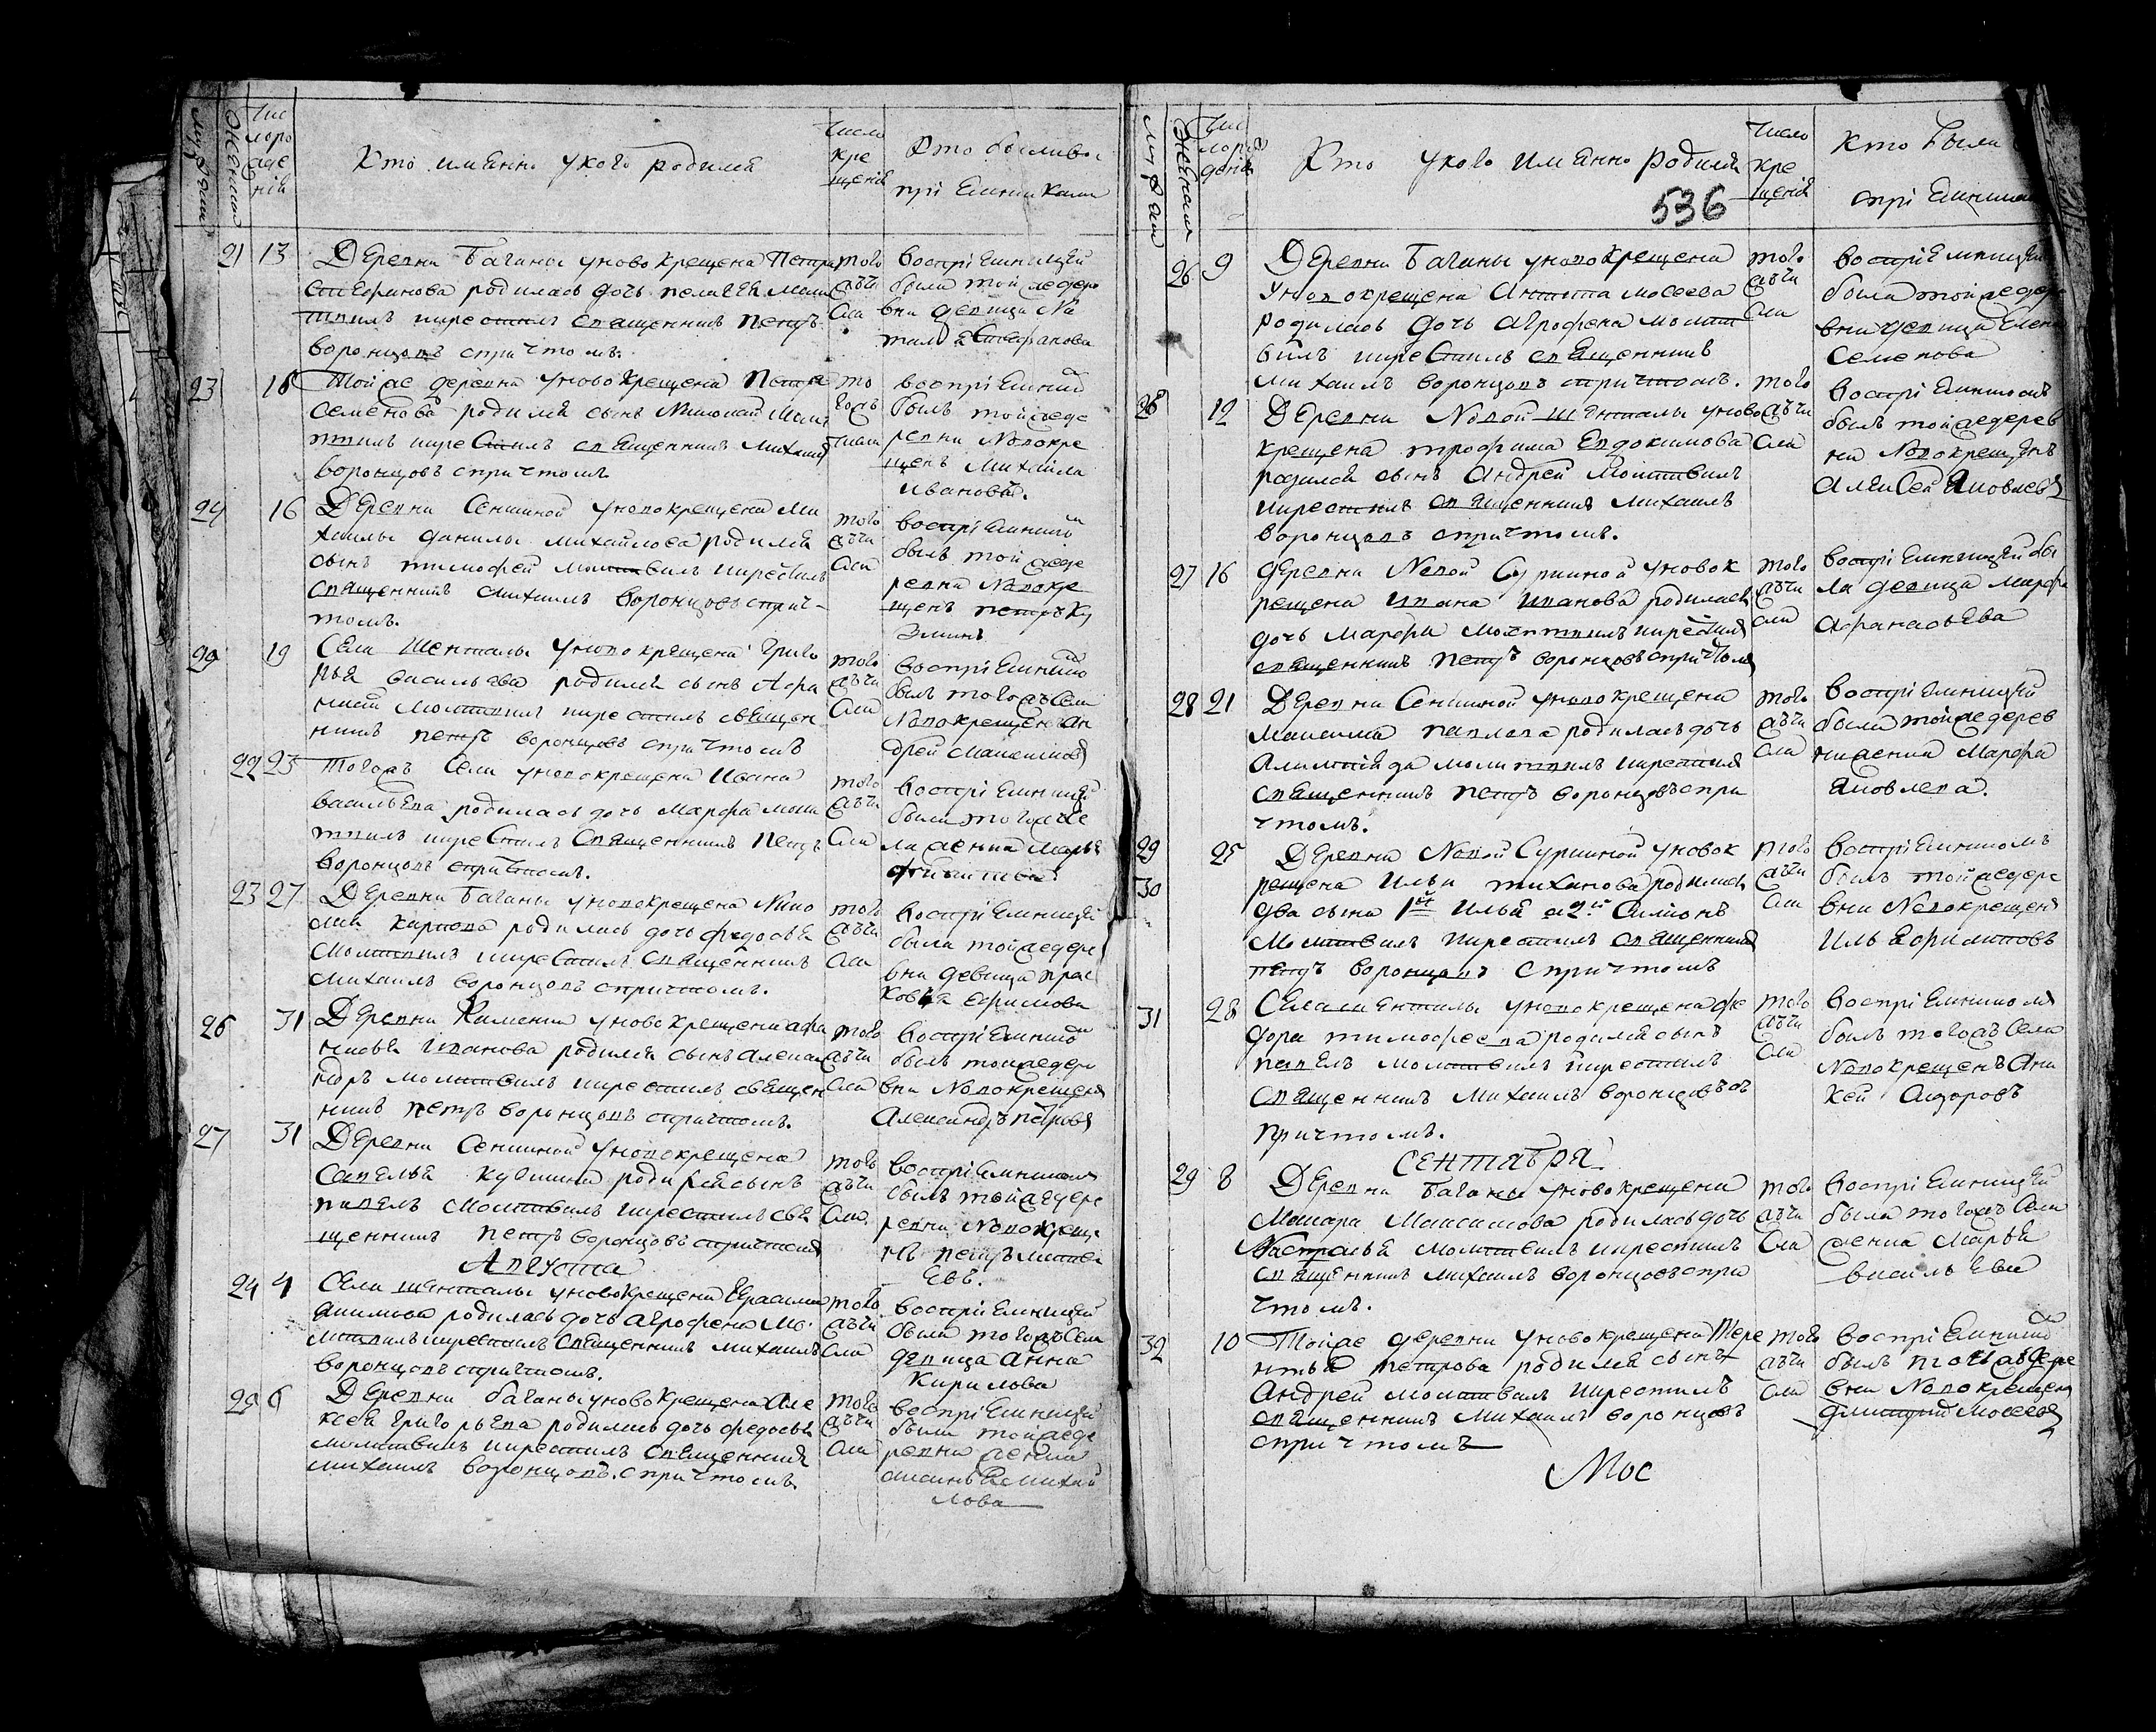 Мужска
Женска
Чис
лоро
жде
ній
Кто имянно укого родился
Число
кре
щеній
Кто были вос
пріемниками
21 13 Деревни Баганы уновокрещена Петра
Стефанова родилась дочь Пелагея моли
твилъ икрестилъ священникъ Петръ
Воронцовъ спричтомъ.
того
жъчи
сла
воспріемницей
была тойжедере
вни девица На
талья Стефанова
23 15 Тойже деревни уновокрещена Петра
Семенова родился сынъ Николай моли
твилъ икрестилъ священникъ Михаилъ
Воронцовъ спричтомъ
то
гожъ
числа
воспріемник
былъ тойжеде
ревни Новокре
щенъ Михайла
Ивановъ.
24 16 Деревни Сенкиной уновокрещена Ми
хайлы Данилы Михайлова родился
сынъ Тимофей молитвилъ икрестилъ
священникъ Михаилъ Воронцовъ сприч-
томъ.
того
жъчи
сла
воспріемником
былъ тойжеде
ревни Новокре
щенъ Петръ Ку
зминъ
25 19 Села Шенталы уновокрещена Григо
рья Васильева родился сынъ Афа
насей молитвилъ икрестилъ священ
никъ Петръ Воронцовъ спричтомъ
того
жъчи
сла
воспріемником
былъ тогожъ села
Новокрещенъ Ан
дрей Максимовъ
22 23 Тогожъ села уновокрещена Ивана
Васильева родилась дочь Марфа моли
твилъ икрестилъ священникъ Петръ
Воронцовъ спричтомъ.
того
жъчи
сла
воспріемницей
была тогожъ се
ла женка Марья
23 27 Деревни Баганы уновокрещена Нико
лая Карпова родилась дочь Федосья
молитвилъ икрестилъ священникъ
Михаилъ Воронцовъ спричтомъ.
того
жъчи
сла
воспріемницей
была тойжедере
вни девица Прас
ковья Ефимова
26 31 Деревни Каменки уновокрещена Афа
насья Иванова родился сынъ Алекса
ндръ молитвилъ икрестилъ священ
никъ Петръ Воронцовъ спричтомъ.
того
жъчи
сла
воспріемником
былъ тойжедере
вни Новокрещенъ
Александръ Петровъ
27 31 Деревни Сенкиной уновокрещена
Савелья Кузмина родился сынъ
Павелъ молитвилъ икрестилъ свя
щенникъ Петръ Воронцовъ спричтомъ
того
жъчи
сла
воспріемником
былъ тойжедере
ревни Новокреще
нъ Петръ Матве
евъ.
Августа
24 4 Села Шенталы уновокрещена Герасима
Акимова родилась дочь Агрофена мо
литвилъ икрестилъ священникъ Михаилъ
Воронцовъ спричтомъ.
того
жъчи
сла
воспріемницей
была тогожъ села
девица Анна
Кирилова
25 6 Деревни Баганы уновокрещена Але
ксея Григорьева родилась дочь Федосья
молитвилъ икрестилъ священникъ
Михаилъ Воронцовъ. спричтомъ.
того
жъчи
сла
воспріемницей
была тойжеде
ревни женка
Аксинья Михай
лова
Мужска
Женска
Чис
лорож
деній
Кто укого имянно родился
536
Число
кре
щеній
Кто были
спріемника
26 9 Деревни Баганы уновокрещена
уновокрещена Антипа Мосеева
родилась дочь Агрофена молит
вилъ икрестилъ священникъ
Михаилъ Воронцовъ спричтомъ.
того
жъчи
сла
воспріемницей
была тойжедере
вни девица Елена
Семенова
28 12 Деревни Новой Шенталы уново
крещена Трофима Евдокимова
родился сынъ Андрей молитвилъ
икрестилъ священникъ Михаилъ
Воронцовъ спричтомъ.
того
жъчи
сла
воспріемникомъ
былъ тойжедерев
ни Новокрещенъ
Алексей Яковлевъ
27 16 Деревни Новой Суркиной уновок
рещена Ивана Иванова родилась
дочь Марфа молитвилъ икрестилъ
священникъ Петръ Воронцовъ спричтомъ
того
жъчи
сла
воспріемницей бы
ла девица Марфа
Афанасьева
28 21 Деревни Сенкиной уновокрещена
Максима Павлова родилась дочь
молитвилъ икрестилъ
священникъ Петръ Воронцовъ спри
чтомъ.
того
жъчи
сла
воспріемницей
была тойжедерев
ни женка Марфа
Яковлева.
29
30
25 Деревни Новой Суркиной уновок
рещена Ильи Тиханова родились
два сына 1й Илья а2й Симіонъ
молитвилъ икрестилъ священникъ
Петръ Воронцовъ спричтомъ
того
жъчи
сла
воспріемникомъ
былъ тойжедере
вни Новокрещенъ
Илья Филиповъ
31 28 Села Шенталы уновокрещена Фе
дора Тимофеева родился сынъ
Павелъ молитвилъ икрестилъ
священникъ Михаилъ Воронцовъ съ
причтомъ.
того
жъчи
сла
воспріемникомъ
былъ тогожъ села
Новокрещенъ Ани
кей Сидоровъ
Сентября
29 8 Деревни Баганы уновокрещена
Макара Максимова родилась дочь
Настасья молитвилъ икрестилъ
священникъ Михаилъ Воронцовъ спри
чтомъ.
того
жъчи
сла
воспріемницей
была тогожъ села
женка Марья
Васильева
32 10 Тойже деревни уновокрещена Тере
нтья Петрова родился сынъ
Андрей молитвилъ икрестилъ
священникъ Михаилъ Воронцовъ
спричтомъ
того
жъчи
сла
воспріемником
былъ тойжъдере
вни Новокрещенъ
Дмитрий Мосеевъ
Мос